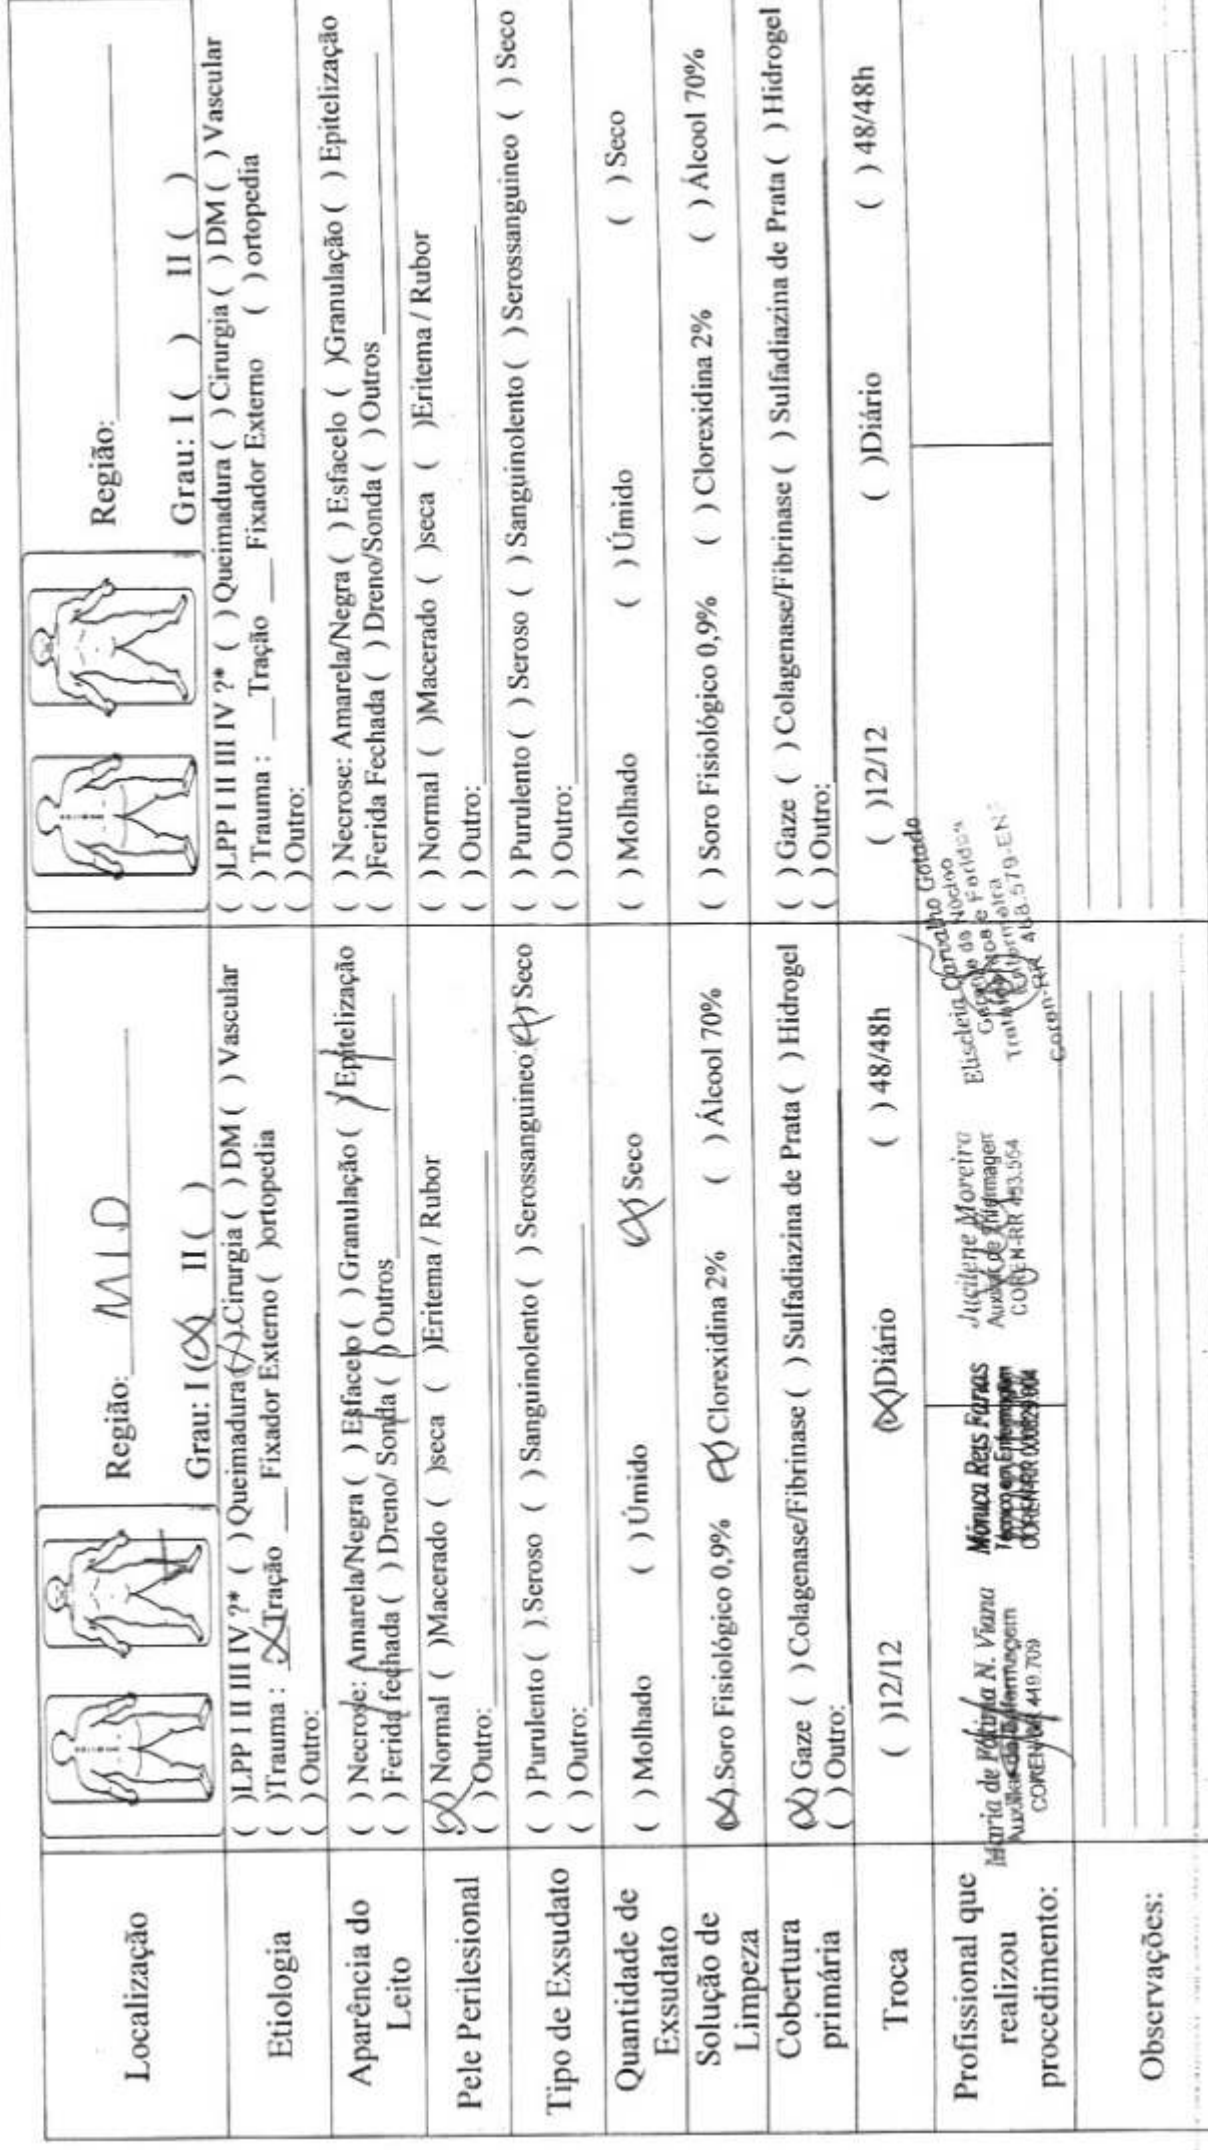 Localização
Região: MID
Grau: I (X) II ( )
Região:
Grau: I ( ) II ( )
Etiologia
( )LPP I II III IV ?* ( ) Queimadura (X) Cirurgia ( ) DM ( ) Vascular
( )Trauma : X Tração ___ Fixador Externo ( )ortopedia
( ) Outro:
( )LPP I II III IV ?* ( ) Queimadura ( ) Cirurgia ( ) DM ( ) Vascular
( ) Trauma : ___Tração ___Fixador Externo ( ) ortopedia
( ) Outro:
Aparência do
Leito
( ) Necrose: Amarela/Negra ( ) Esfacelo ( ) Granulação ( ) Epitelização
( ) Ferida fechada ( ) Dreno/ Sonda ( ) Outros
( ) Necrose: Amarela/Negra ( ) Esfacelo ( )Granulação ( ) Epitelização
( )Ferida Fechada ( ) Dreno/Sonda ( ) Outros
Pele Perilesional
(X) Normal ( )Macerado ( )seca ( )Eritema / Rubor
( ) Outro:
( ) Normal ( )Macerado ( )seca ( )Eritema / Rubor
( ) Outro:
Tipo de Exsudato
( ) Purulento ( ) Seroso ( ) Sanguinolento ( ) Serossanguineo (X) Seco
( ) Outro:
( ) Purulento ( ) Seroso ( ) Sanguinolento ( ) Serossanguineo ( ) Seco
( ) Outro:
Quantidade de
Exsudato
( ) Molhado ( ) Úmido (X) Seco
( ) Molhado ( ) Úmido ( ) Seco
Solução de
Limpeza
(X) Soro Fisiológico 0,9% (X) Clorexidina 2% ( ) Álcool 70%
( ) Soro Fisiológico 0,9% ( ) Clorexidina 2% ( ) Álcool 70%
Cobertura
primária
(X) Gaze ( ) Colagenase/Fibrinase ( ) Sulfadiazina de Prata ( ) Hidrogel
( ) Outro:
( ) Gaze ( ) Colagenase/Fibrinase ( ) Sulfadiazina de Prata ( ) Hidrogel
( ) Outro:
Troca
( )12/12 (X)Diário ( ) 48/48h
( )12/12 ( )Diário ( ) 48/48h
Profissional que
realizou
procedimento:
Maria de Fátima N. Viana
Auxiliar de Enfermagem
COREN-RR 449.709
Mônica Reis Farias
Técnico em Enfermagem
COREN-RR 000829.904
Jucilene Moreira
Auxiliar de Enfermagem
COREN-RR 493.564
Eliscleia Carvalho Gotado
Gerente do Núcleo
Feridas
Enfermeira
Coren-RR 468.579-EN
Observações: